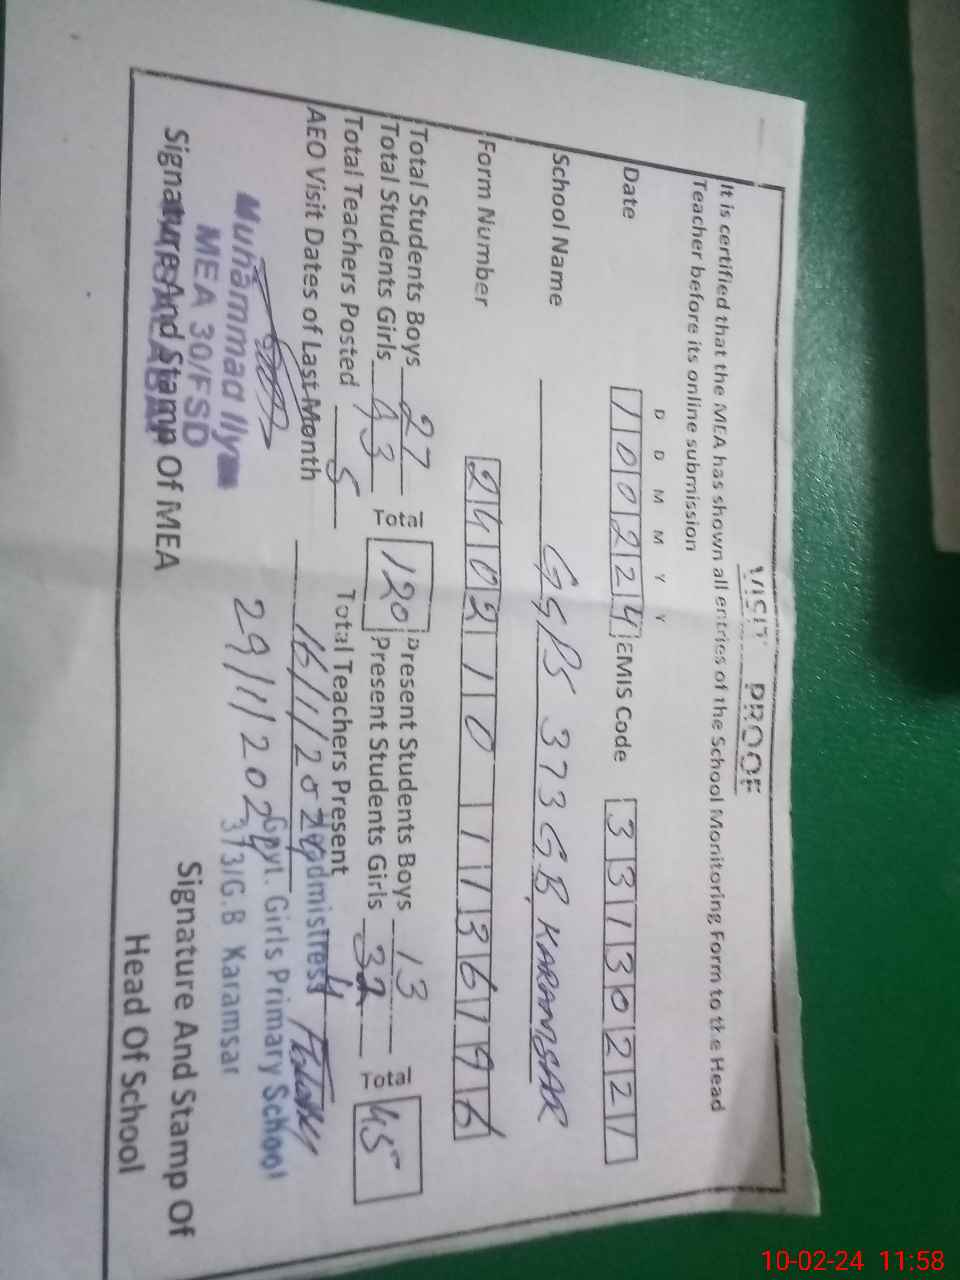 VISIT PROOF
It is certified that the MEA has shown all entries of the School Monitoring Form to the Head
Teacher before its online submission
D D M M Y Y
Date 100224 EMIS Code 33130221
School Name GGPS 373 GB KARAMSAR
Form Number 24021011361796
Total Students Boys 27 Total 120 Present Students Boys 13 Total 45
Total Students Girls 93 Present Students Girls 32
Total Teachers Posted 5 Total Teachers Present 4
AEO Visit Dates of Last Month 16/1/2024
29/1/2024
Muhammad Ilyas
MEA 30/FSD
Headmistress
Govt. Girls Primary School
373/G.B Karamsar
Signature And Stamp Of MEA
Signature And Stamp Of
Head Of School
10-02-24 11:58